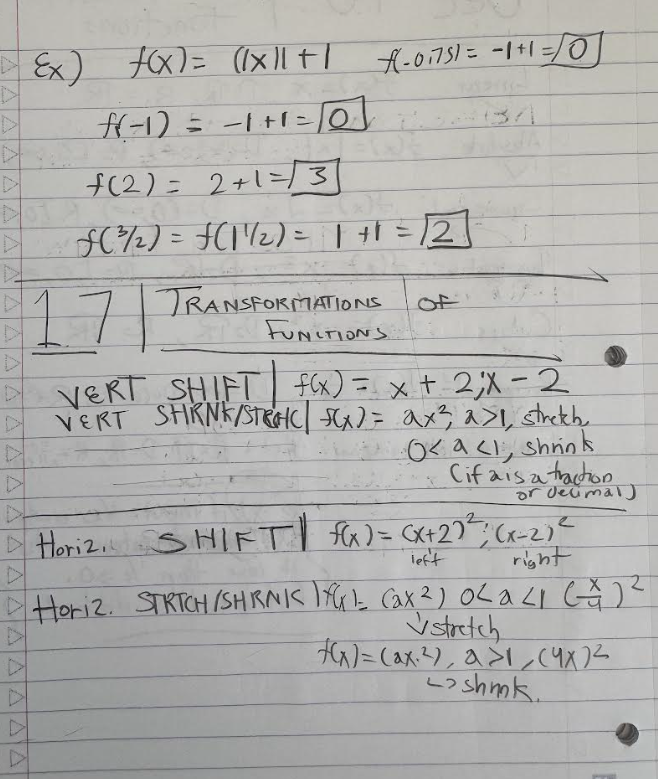 Ex) f(x) = ⟦x⟧ + 1 f(-0.75) = -1+1 = 0
f(-1) = -1+1 = 0
f(2) = 2+1 = 3
f(3/2) = f(1 1/2) = 1 +1 = 2
1.7 | TRANSFORMATIONS OF
FUNCTIONS
VERT SHIFT | f(x) = x + 2; x - 2
VERT SHRNK/STRCHC | f(x) = ax², a>1, stretch
0< a <1, shrink
(if a is a fraction
or decimal)
Horiz. SHIFT | f(x) = (x+2)²; (x-2)²
left right
Horiz. STRTCH/SHRNK | f(x) = (ax²) 0< a <1 (x/4)²
↓stretch
f(x) = (ax²), a >1, (4x)²
↳ shrnk.